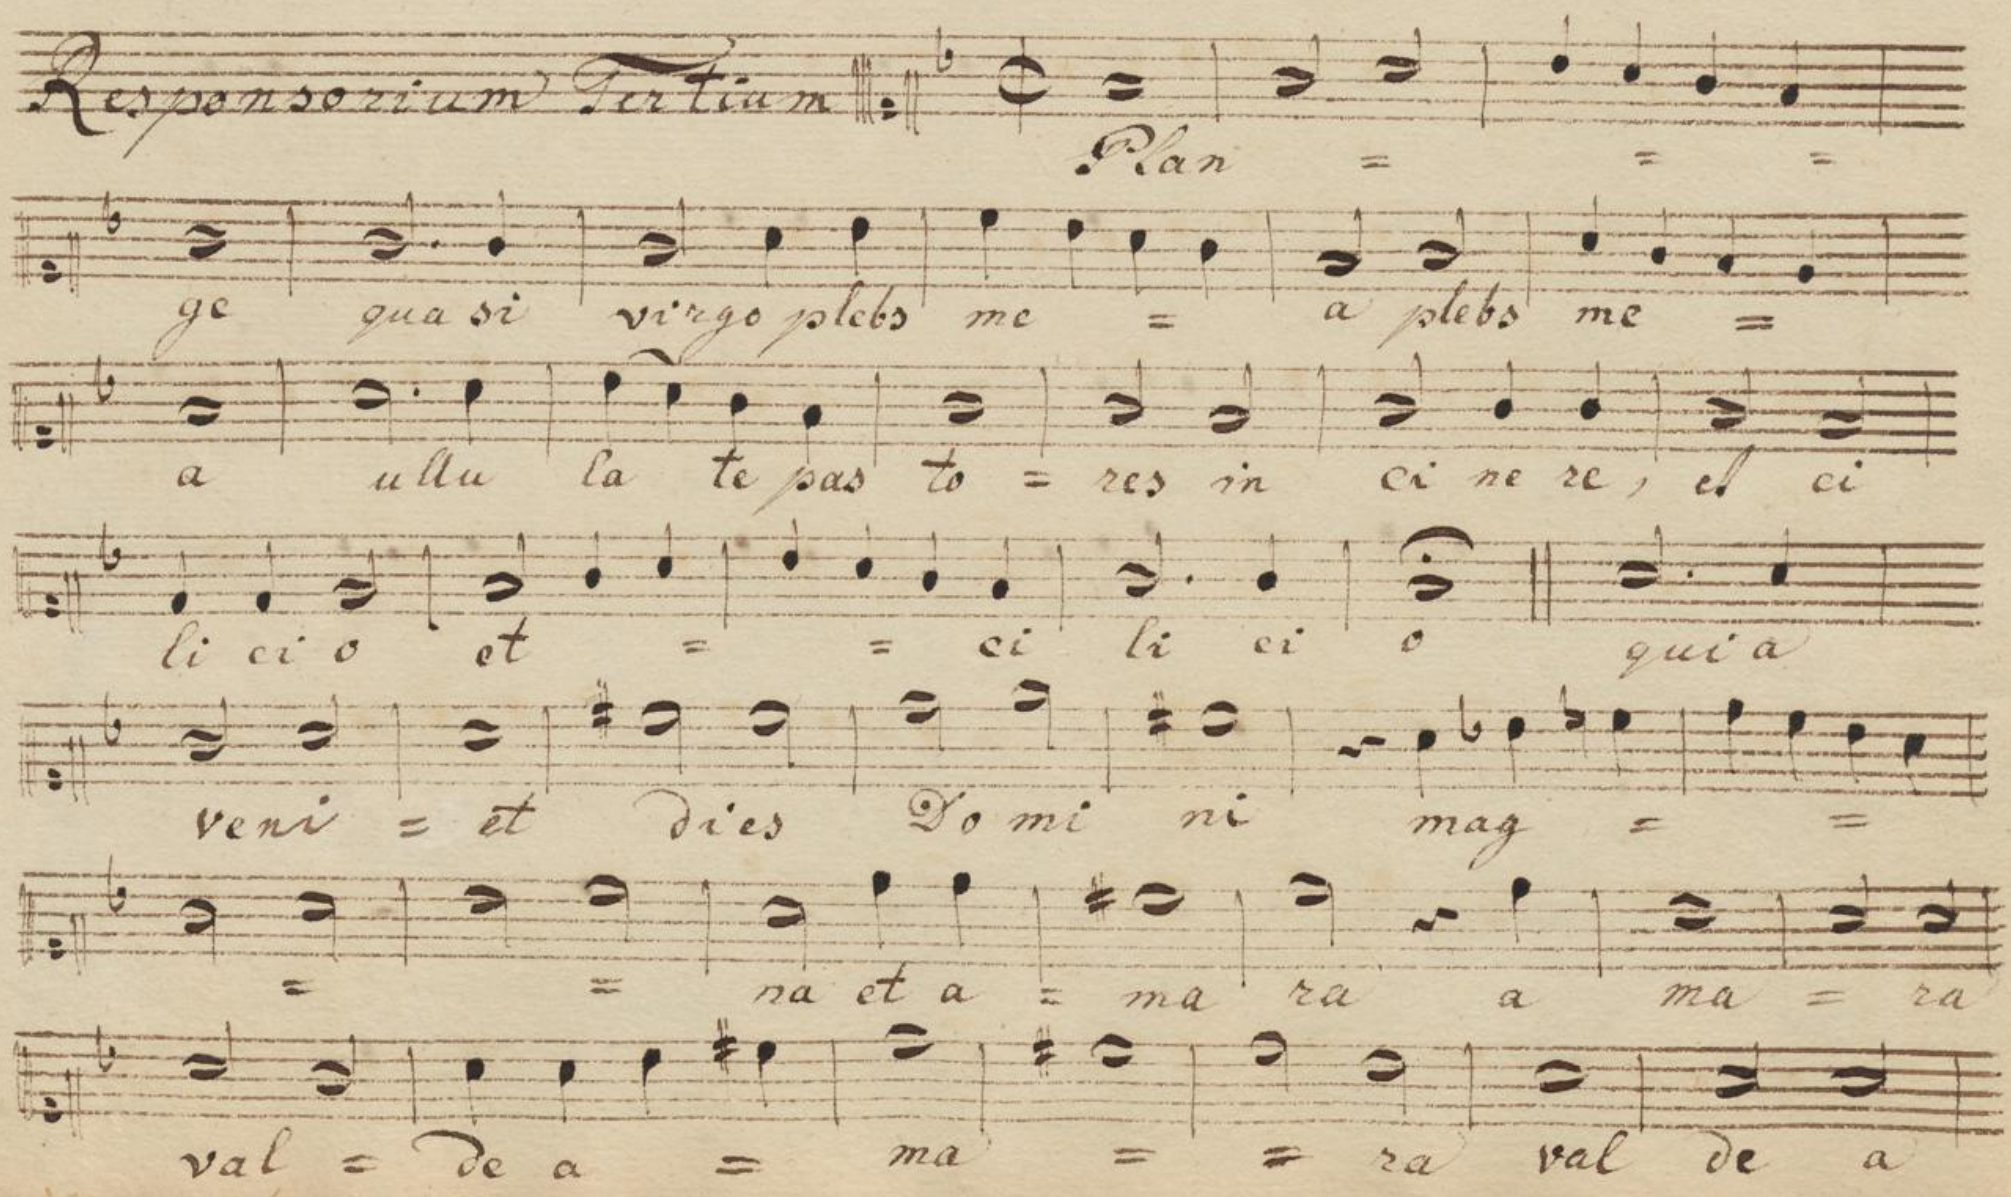 Responsorium Tertium
Plan = = =
ge quasi virgo plebs me = a plebs me =
a ullu la te pas to = res in ci ne re, et ci
li ci o et = = ci li ci o quia
veni = et dies Do mi ni mag = =
= = na et a = ma ra a ma = ra
val = de a = ma = = ra val de a